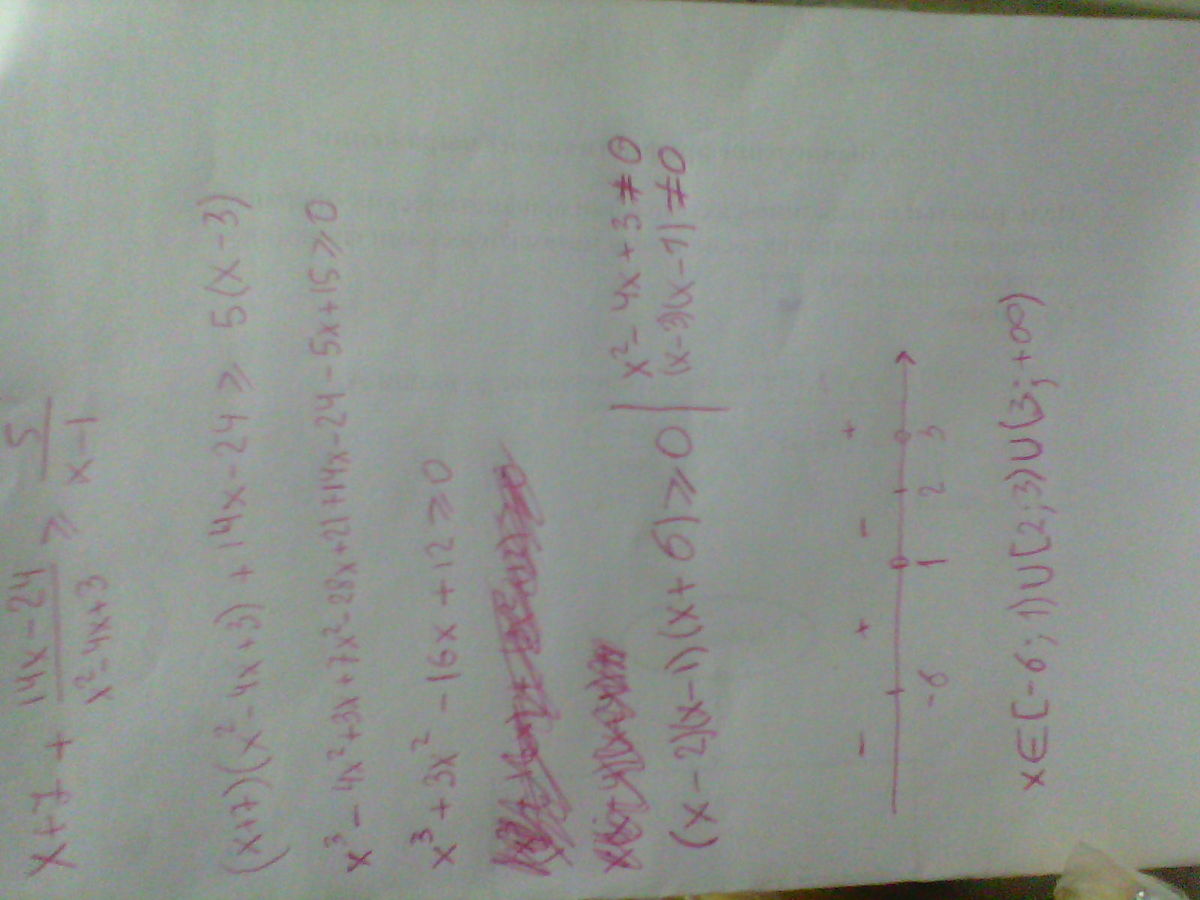 x+7 + (14x-24)/(x²-4x+3) ≥ 5/(x-1)
(x+7)(x²-4x+3) + 14x-24 ≥ 5(x-3)
x³-4x²+3x+7x²-28x+21+14x-24-5x+15≥0
x³+3x²-16x+12≥0
(x-2)(x-1)(x+6)≥0 | x²-4x+3≠0
(x-3)(x-1)≠0
- + - +
-6 1 2 3
x∈[-6;1)∪[2;3)∪(3;+∞)